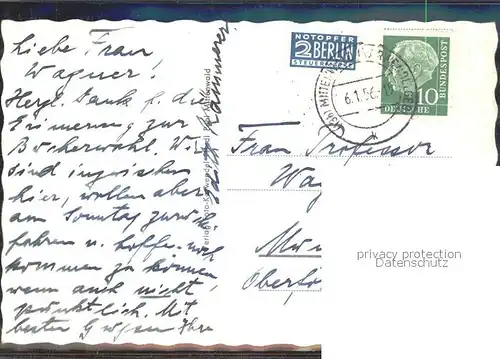 Liebe Frau
Wagner!
Herzl. Dank f. die
Erinnerung zur
Bücherwahl. Wir
sind inzwischen
hier, wollen aber
am Sonntag zurück-
fahren u. hoffe noch
kommen zu können
wenn auch nicht
pünktlich. Mit
besten Grüßen Ihre
NOTOPFER
2 BERLIN
STEUERMARKE
6.1.56
DEUTSCHE
BUNDESPOST
10
Frau Professor
Wag
Mün
privacy protection
Datenschutz